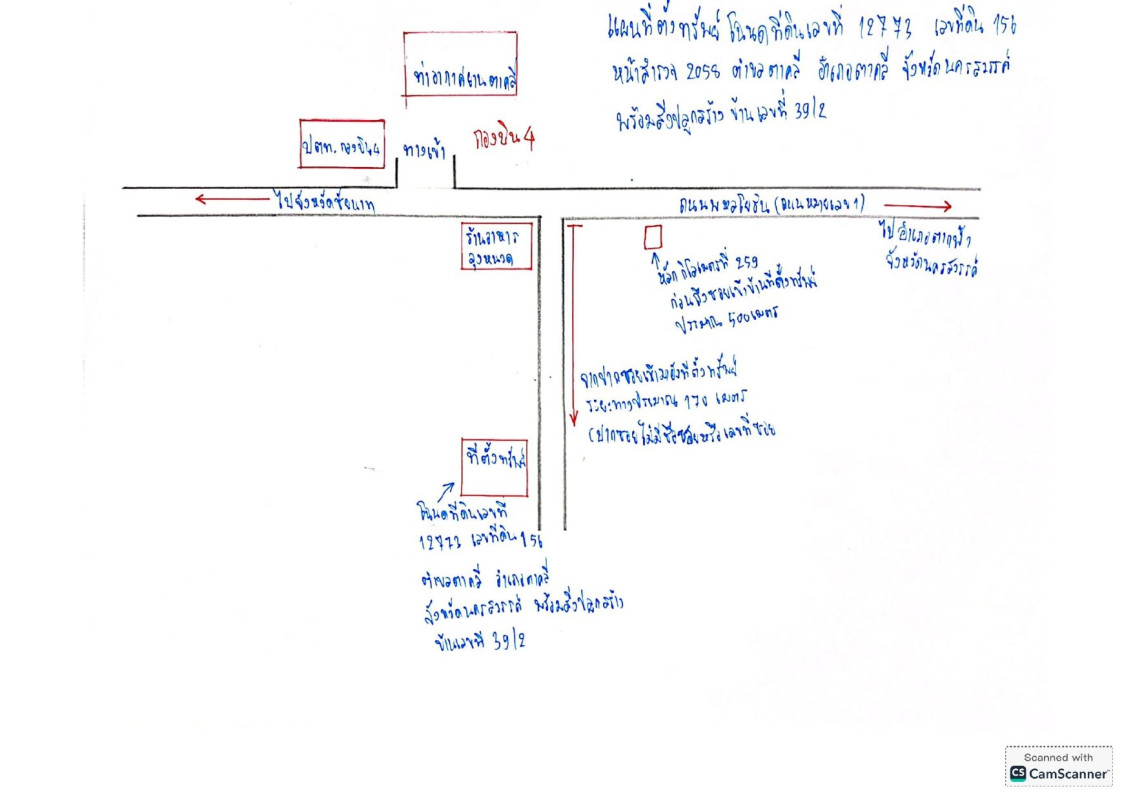 แผนที่ตั้งทรัพย์ โฉนดที่ดินเลขที่ 12773 เลขที่ดิน 156
หน้าสำรวจ 2058 ตำบลตาคลี อำเภอตาคลี จังหวัดนครสวรรค์
พร้อมสิ่งปลูกสร้าง บ้านเลขที่ 39/2
ท่าอากาศยานตาคลี
กองบิน 4
ปตท. กองบิน 4
ทางเข้า
ไปจังหวัดชัยนาท
ถนนพหลโยธิน (ถนนหมายเลข 1)
ไปอำเภอตากฟ้า
จังหวัดนครสวรรค์
ร้านอาหาร
ลุงหนวด
หลักกิโลเมตรที่ 259
ก่อนถึงซอยเข้าบ้านที่ตั้งทรัพย์
ประมาณ 500 เมตร
จากปากซอยเข้ามายังที่ตั้งทรัพย์
ระยะทางประมาณ 170 เมตร
(ปากซอยไม่มีชื่อซอยหรือเลขที่ซอย
ที่ตั้งทรัพย์
โฉนดที่ดินเลขที่
12773 เลขที่ดิน 156
ตำบลตาคลี อำเภอตาคลี
จังหวัดนครสวรรค์ พร้อมสิ่งปลูกสร้าง
บ้านเลขที่ 39/2
Scanned with
CS CamScanner